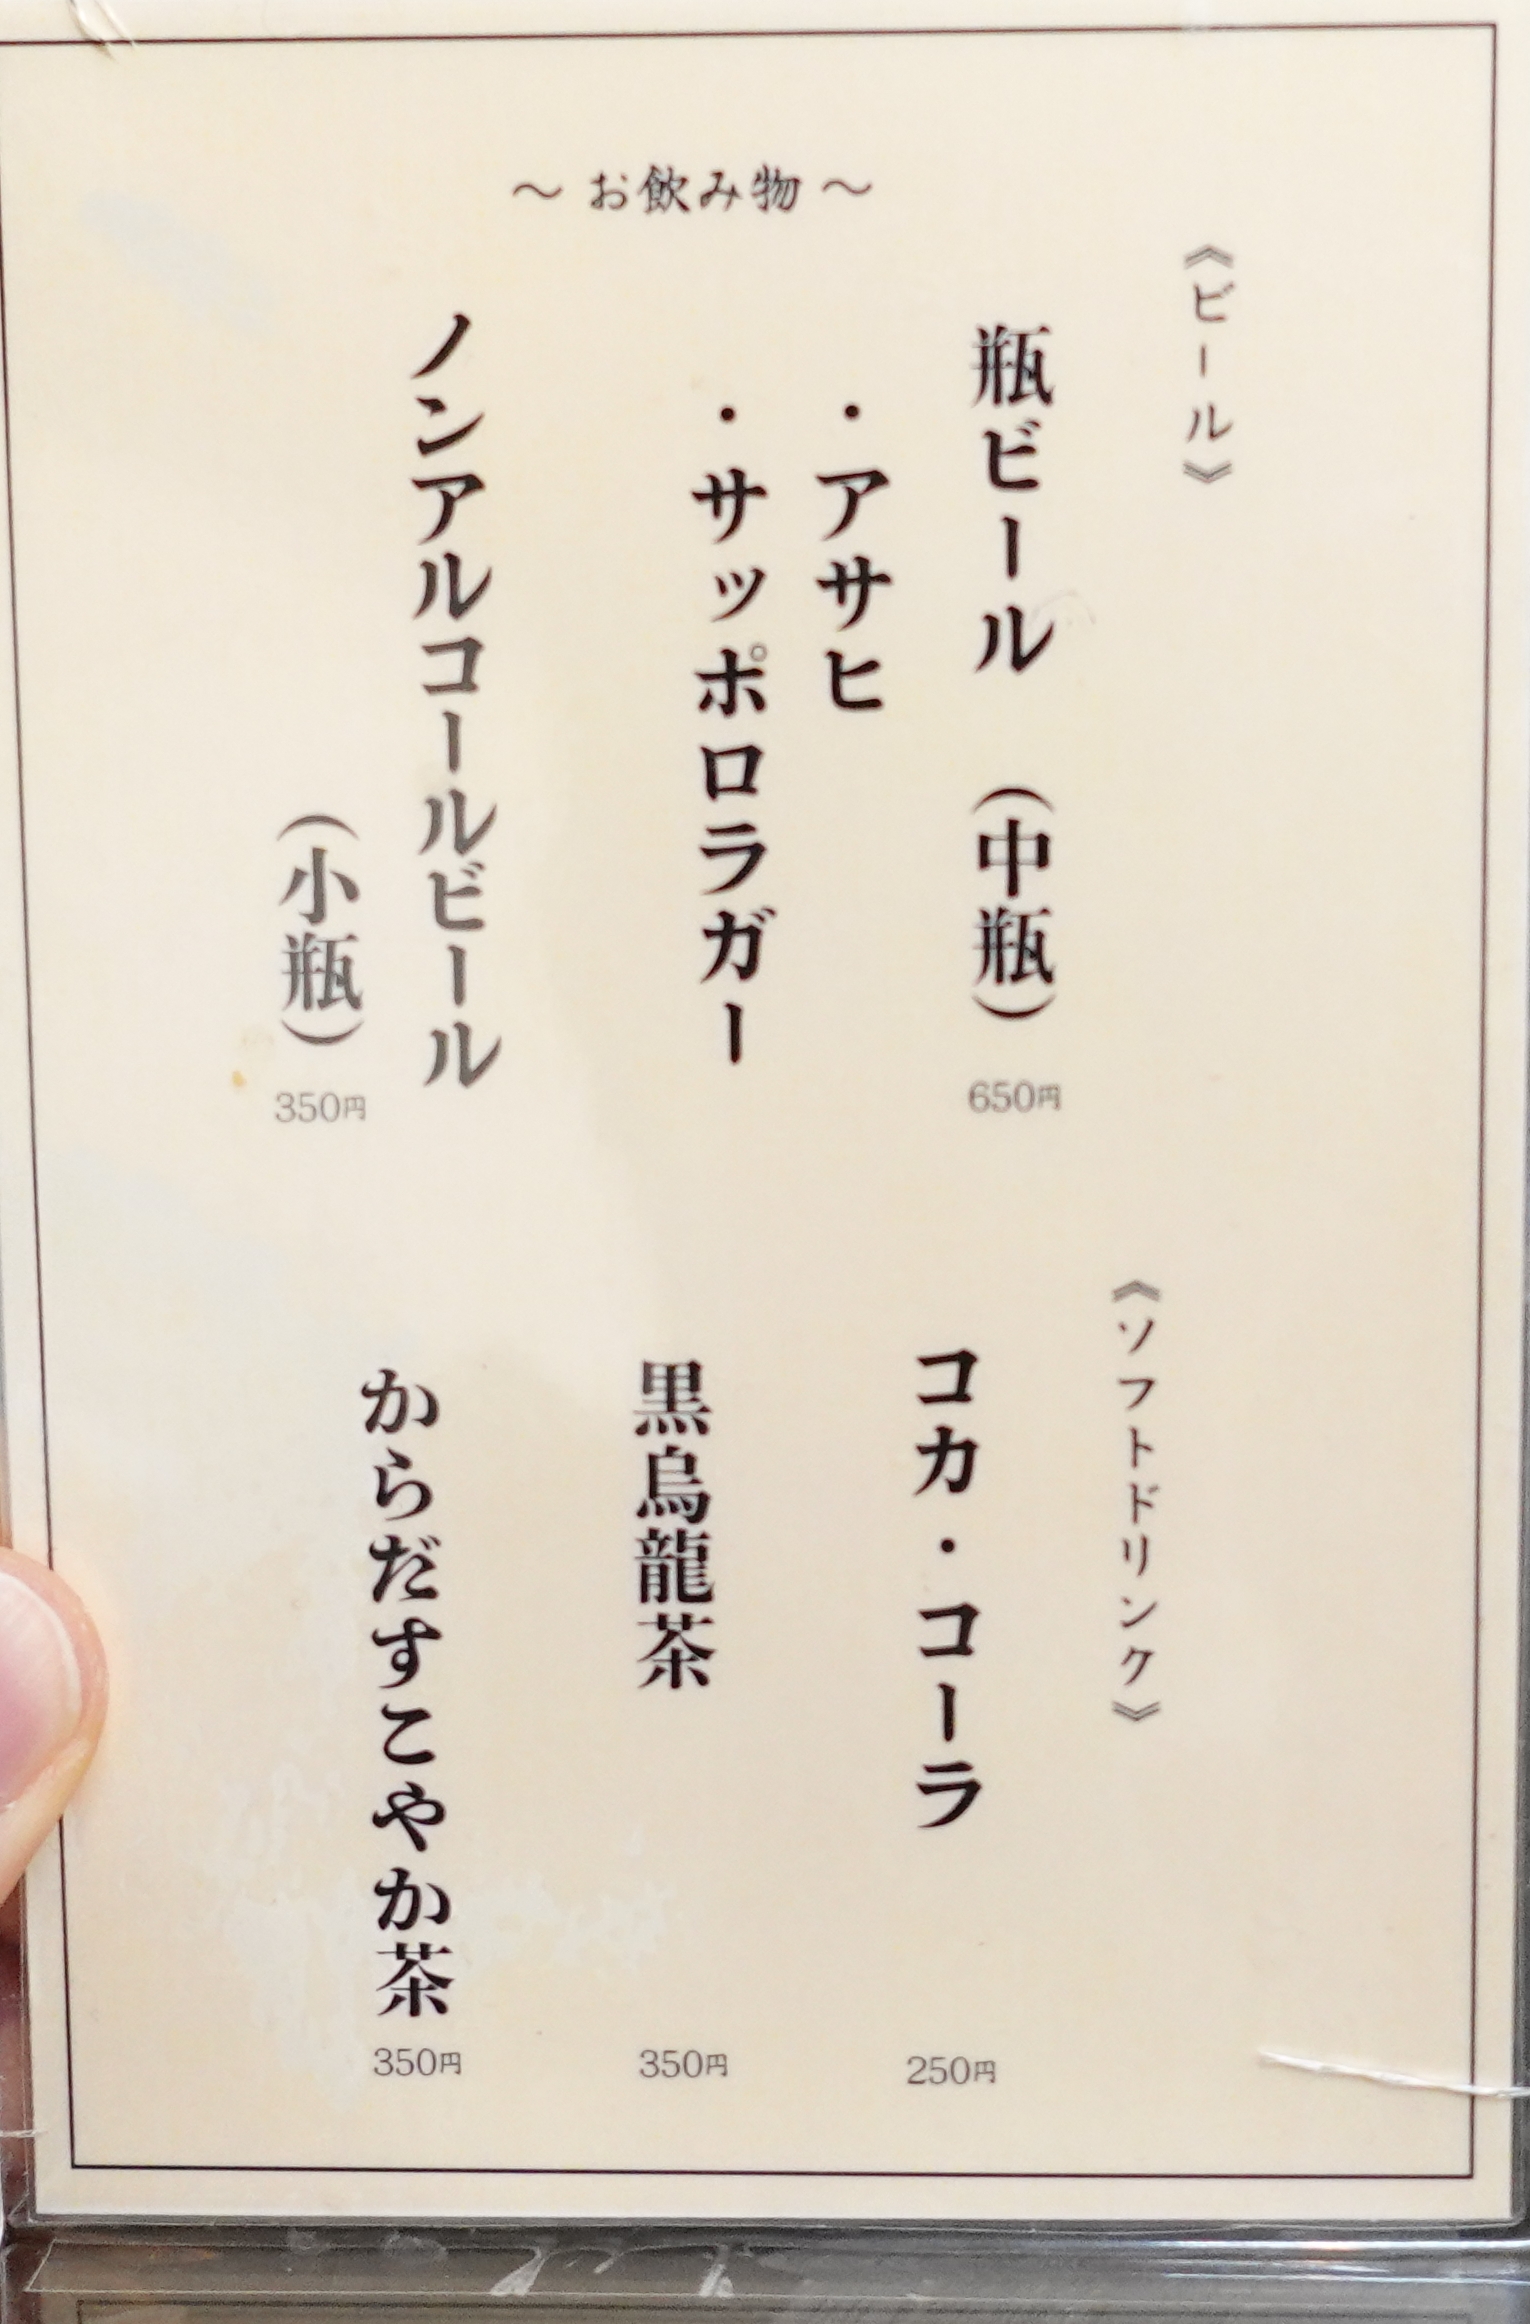 ～ お飲み物 ～
《ビール》
瓶ビール （中瓶）
650円
・アサヒ
・サッポロラガー
ノンアルコールビール
（小瓶）
350円
《ソフトドリンク》
コカ・コーラ
250円
黒烏龍茶
350円
からだすこやか茶
350円